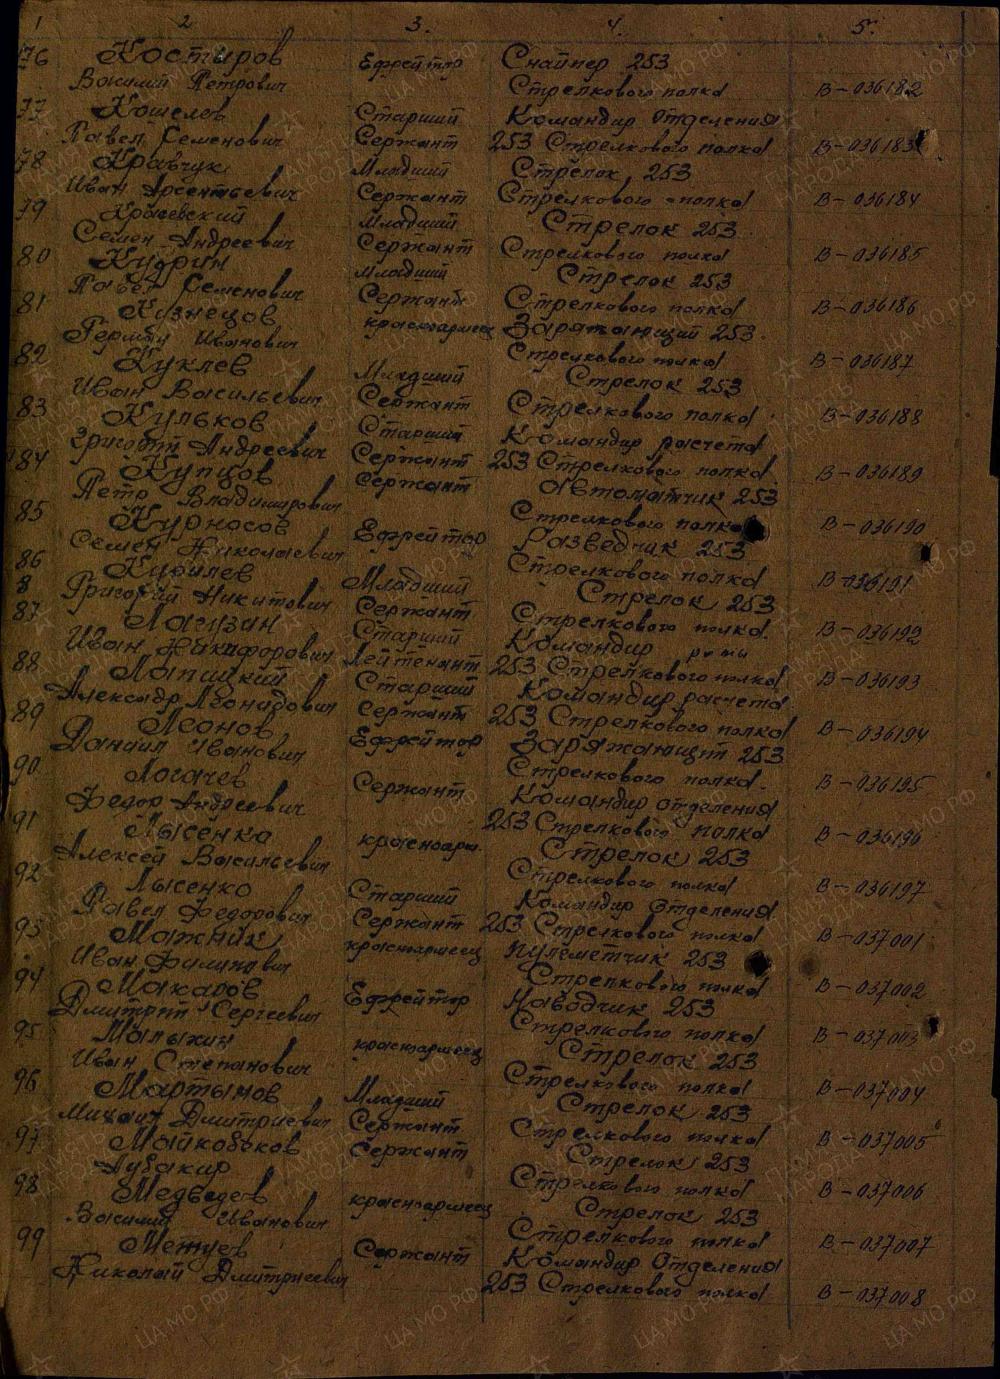 1 2 3. 4. 5.
76 Костыров Ефрейтор Снайпер 253
Василий Петрович Стрелкового полка В-036182
77 Кошелев Старший Командир Отделения
Павел Семенович Сержант 253 Стрелкового полка В-036183
78 Кравчук Младший Стрелок 253
Иван Арсентьевич Сержант Стрелкового полка В-036184
79 Красевский Младший Стрелок 253
Семен Андреевич Сержант Стрелкового полка В-036185
80 Кудрин Младший Стрелок 253
Павел Семенович Сержант Стрелкового полка В-036186
81 Кузнецов красноармеец Заряжающий 253
Иванович Стрелкового полка В-036187
82 Куклев Младший Стрелок 253
Иван Васильевич Сержант Стрелкового полка В-036188
83 Кульков Старший Командир расчета
Андреевич Сержант 253 Стрелкового полка В-036189
84 Купцов Сержант Автоматчик 253
Петр Владимирович Стрелкового полка В-036190
85 Курносов Ефрейтор Разведчик 253
Семен Николаевич Стрелкового полка В-036191
86 Курилев Младший Стрелок 253
8 Григорий Никитович Сержант Стрелкового полка В-036192
87 Лагузин Старший Командир роты
Иван Никифорович Лейтенант 253 Стрелкового полка В-036193
88 Лапицкий Старший Командир расчета
Александр Леонидович Сержант 253 Стрелкового полка В-036194
89 Леонов Ефрейтор Заряжающий 253
Даниил Иванович Стрелкового полка В-036195
90 Логачев Сержант Командир отделения
Федор Андреевич 253 Стрелкового полка В-036196
91 Лысенка красноарм. Стрелок 253
Алексей Васильевич Стрелкового полка В-036197
92 Лысенко Старший Командир Отделения
Павел Федорович Сержант 253 Стрелкового полка В-037001
93 Мажник красноармеец пулеметчик 253
Иван Филипович Стрелкового полка В-037002
94 Макаров Ефрейтор Наводчик 253
Дмитрий Сергеевич Стрелкового полка В-037003
95 Малыхин красноармеец Стрелок 253
Иван Степанович Стрелкового полка В-037004
96 Мартынов Младший Стрелок 253
Михаил Дмитриевич Сержант Стрелкового полка В-037005
97 Сержант Стрелок 253
Аубакир Стрелкового полка В-037006
98 Медведев красноармеец Стрелок 253
Василий Иванович Стрелкового полка В-037007
99 Сержант Командир Отделения
Николай Дмитриевич 253 Стрелкового полка В-037008